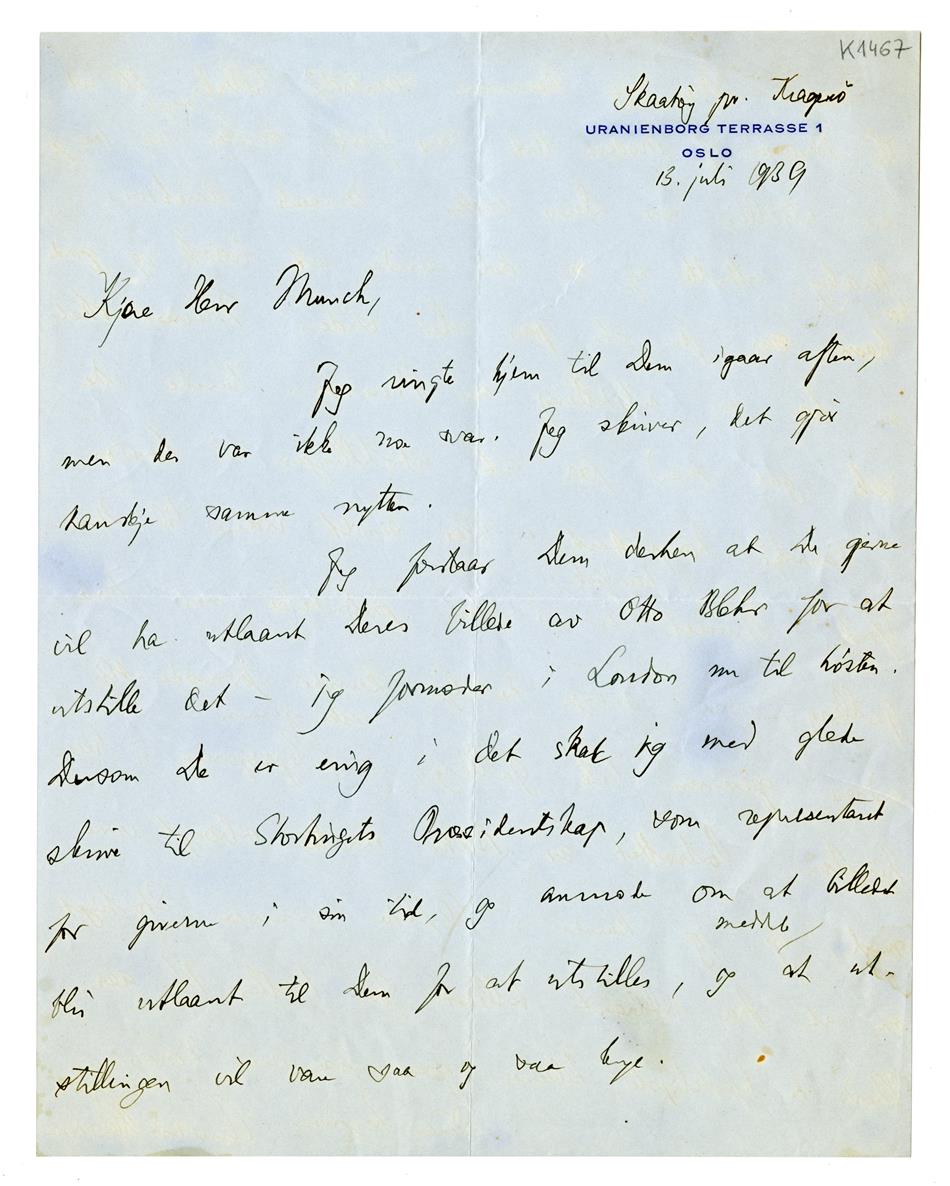 K1467
Skaatøy pr. Kragerø
URANIENBORG TERRASSE 1
OSLO
13. juli 1939
Kjære Herr Munch,
Jeg ringte hjem til Dem igaar aften,
men der var ikke noe svar. Jeg skriver, det gjør
kanskje samme nytten.
Jeg forstaar Dem derhen at De gjerne
vil ha utlaant Deres billede av Otto Blehr for at
utstille det – jeg formoder i London nu til høsten.
Dersom De er enig i det skal jeg med glede
skrive til Stortingets Præsidentskap, som representant
for giverne i sin tid, og anmode om at billedet
meddele
blir utlaant til Dem for at utstilles, og at ut-
stillingen vil vare saa og saa lenge.